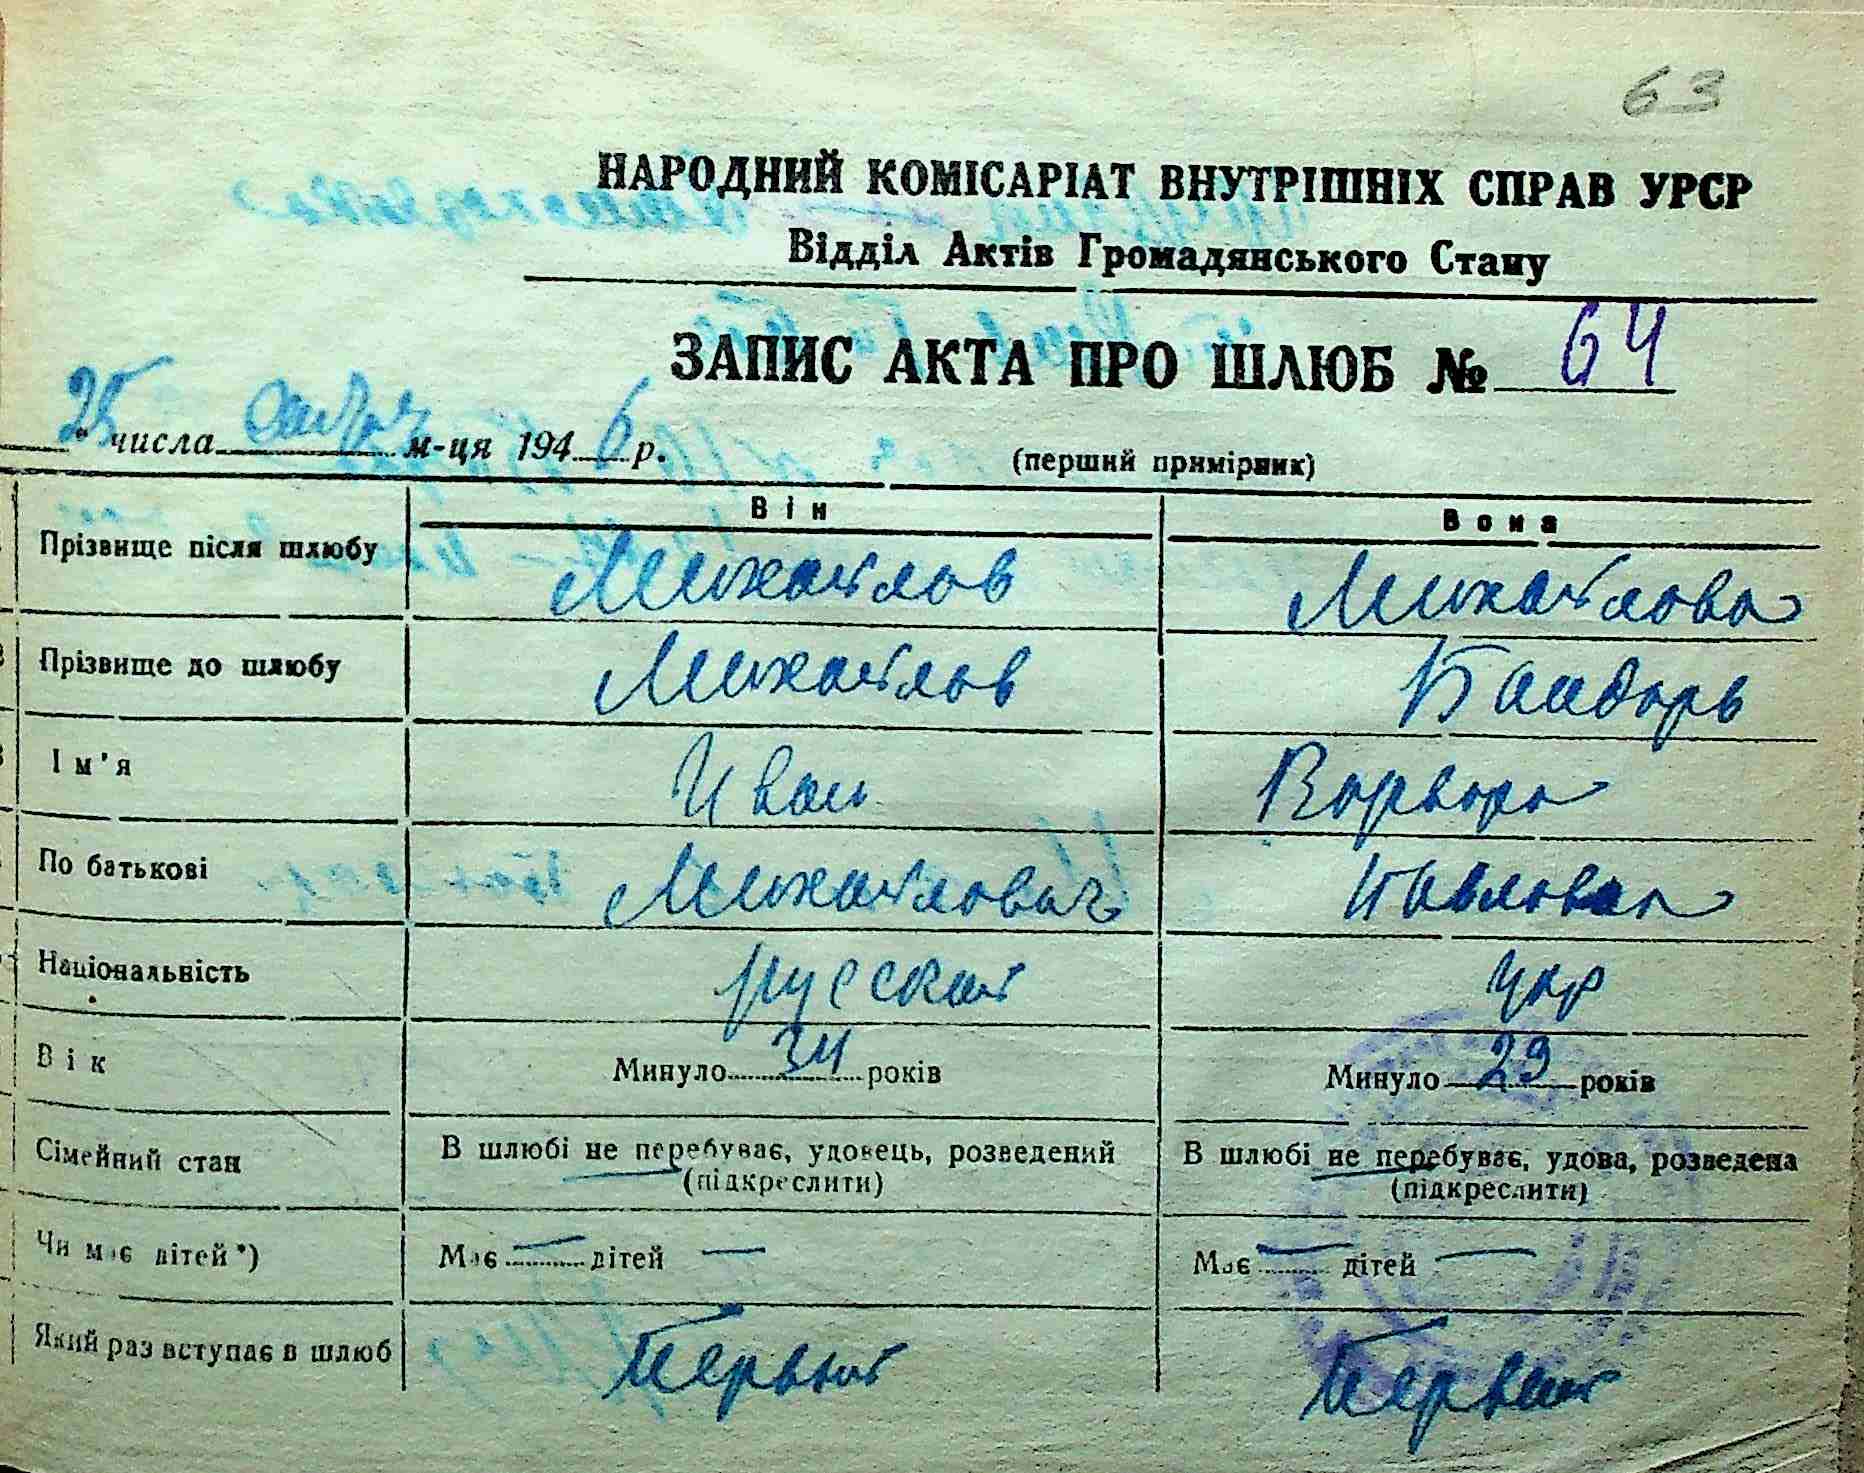 63
НАРОДНИЙ КОМІСАРІАТ ВНУТРІШНІХ СПРАВ УРСР
Відділ Актів Громадянського Стану
ЗАПИС АКТА ПРО ШЛЮБ № 64
25 числа м-ця 1946 р. (перший примірник)
Він Вона
Прізвище після шлюбу Михайлов Михайлова
Прізвище до шлюбу Михайлов
Ім'я Иван Варвара
По батькові Михайлович Павловна
Національність русский укр
Вік Минуло 34 років Минуло 29 років
Сімейний стан В шлюбі не перебуває, удовець, розведений В шлюбі не перебуває, удова, розведена
(підкреслити) (підкреслити)
Чи має дітей*) Має — дітей — Має — дітей —
Який раз вступає в шлюб Первый Первый